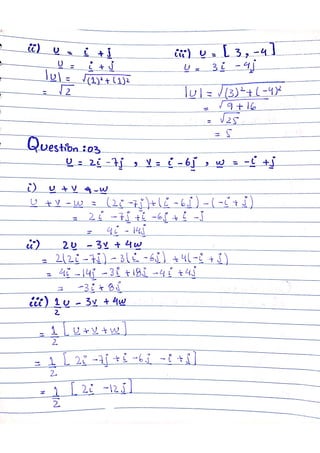 ii) u = i + j
u = i + j
|u| = √(1)²+(1)²
= √2
iii) u = [3, -4]
u = 3i - 4j
|u| = √(3)²+(-4)²
= √9+16
= √25
= 5
Question :03
u = 2i -7j , v = i -6j , w = -i +j
i) u + v - w
u + v - w = (2i -7j)+(i -6j) -(-i +j)
= 2i -7j +i -6j +i -j
= 4i - 14j
ii) 2u - 3v + 4w
= 2(2i -7j) -3(i -6j) +4(-i +j)
= 4i -14j -3i +18j -4i +4j
= -3i + 8j
iii) 1/2 u - 3v + 4w
= 1/2 [u+v+w]
= 1/2 [2i -7j +i -6j -i +j]
= 1/2 [2i -12j]